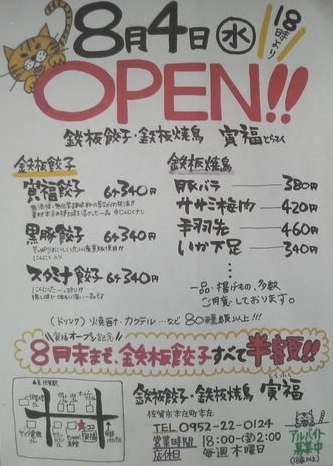 8月4日(水)
18時より
OPEN!!
鉄板餃子・鉄板焼鳥 寅福
鉄板餃子
寅福餃子 6ケ340円
黒豚餃子 6ケ340円
にんにく入り
スタミナ餃子 6ケ340円
鉄板焼鳥
豚バラ 380円
ササミ梅肉 420円
手羽先 460円
いか下足 340円
一品・揚げもの、多数
ご用意しております。
(ドリンク) 焼酎・カクテル…など 80種類以上!!!
寅福オープンを記念し
8月末まで、鉄板餃子すべて半額!!
鉄板餃子・鉄板焼鳥 寅福
佐賀市本庄町本庄
TEL 0952-22-0124
営業時間 18:00~(翌)2:00
店休日 毎週木曜日
アルバイト
募集中